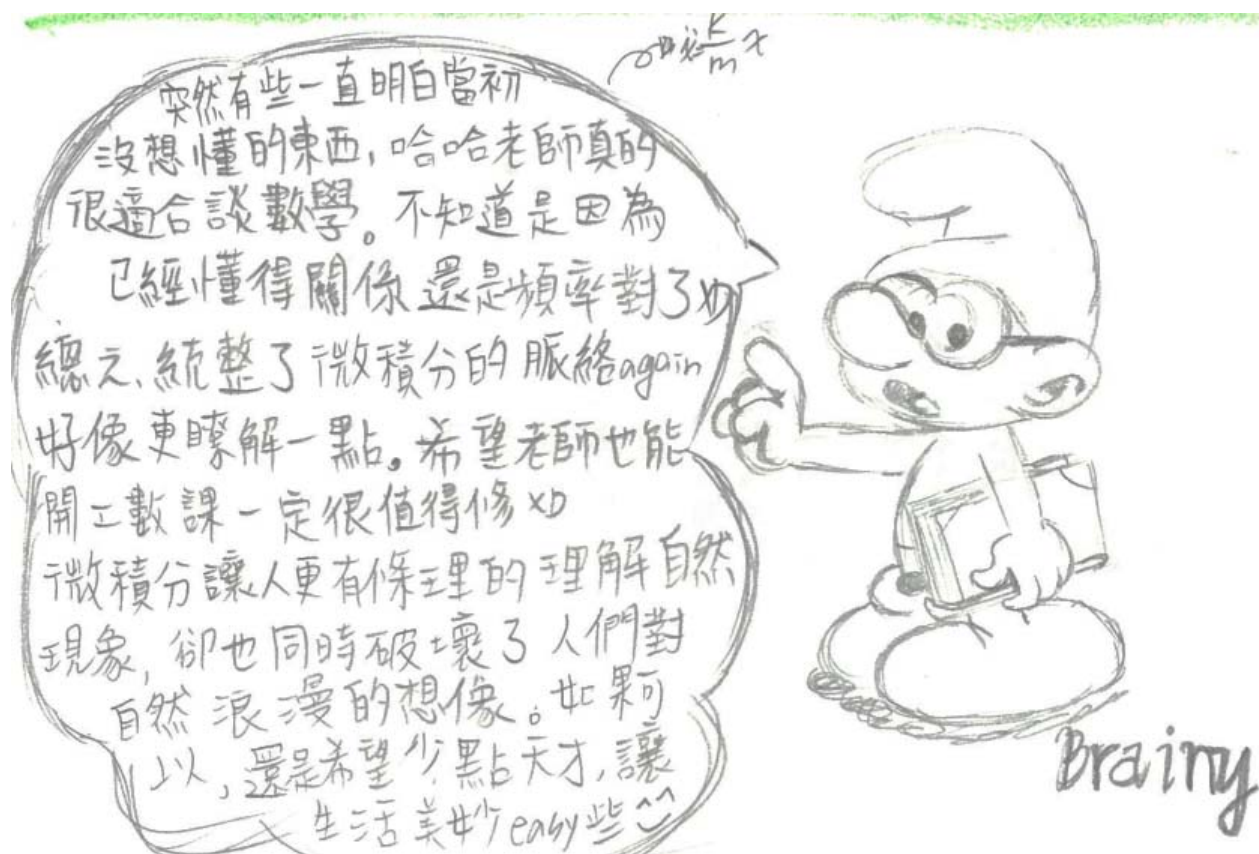 突然有些一直明白當初
沒想懂的東西,哈哈老師真的
很適合談數學。不知道是因為
已經懂得關係還是頻率對了XD
總之、統整了微積分的脈絡again
好像更瞭解一點。希望老師也能
開工數課一定很值得修XD
微積分讓人更有條理的理解自然
現象,卻也同時破壞了人們對
自然浪漫的想像。如果可
以,還是希望少點天才,讓
生活美妙easy些^^
Brainy